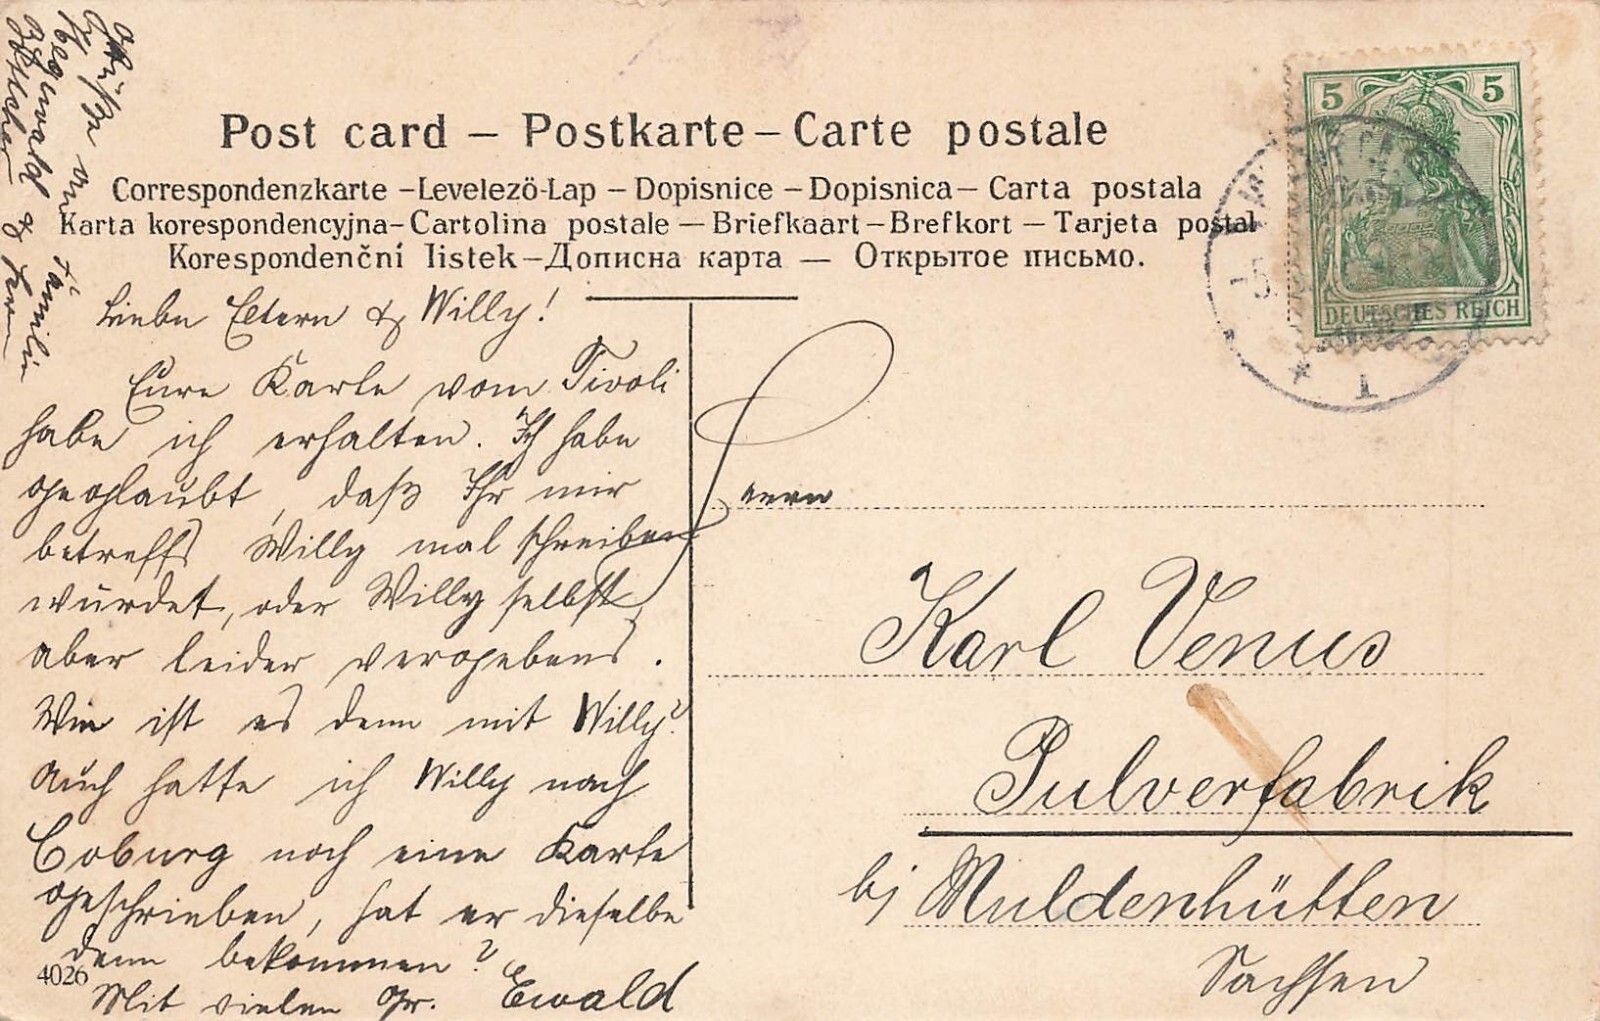 Post card – Postkarte – Carte postale
Correspondenzkarte – Levelezö-Lap – Dopisnice – Dopisnica – Carta postala
Karta korespondencyjna – Cartolina postale – Briefkaart – Brefkort – Tarjeta postal
Korespondenční listek – Дописна карта — Открытое письмо.
Liebe Eltern & Willy!
Eure Karte vom Tivoli
habe ich erhalten. Ich habe
geglaubt, daß Ihr mir
betreffs Willy mal schreiben
würdet, oder Willy selbst,
aber leider vergebens.
Wie ist es denn mit Willy?
Auch hatte ich Willy nach
Coburg noch eine Karte
geschrieben, hat er dieselbe
denn bekommen?
Mit vielen Gr. Ewald
4026
Grüße an Familie
&
5 5
DEUTSCHES REICH
* 1
Herrn
Karl Venus
Pulverfabrik
bj Muldenhütten
Sachsen